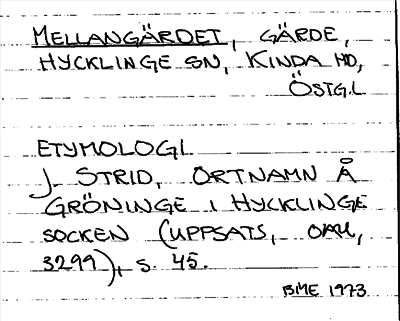 MELLANGÄRDET, GÄRDE,
HYCKLINGE SN, KINDA HD,
ÖSTG.L
ETYMOLOGI
J STRID, ORTNAMN Å
GRÖNINGE I HYCKLINGE
SOCKEN (UPPSATS, OAU,
3299), S. 45.
BME 1973